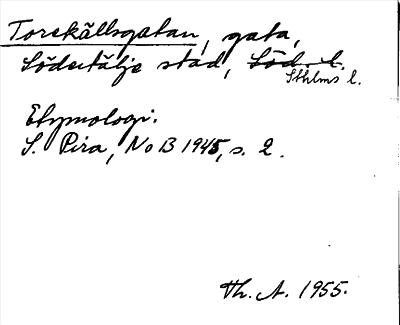 Torekällsgatan, gata,
Södertälje stad, Söd. l.
Sthlms l.
Etymologi.
S. Pira, NoB 1945, s. 2.
Th. A. 1955.